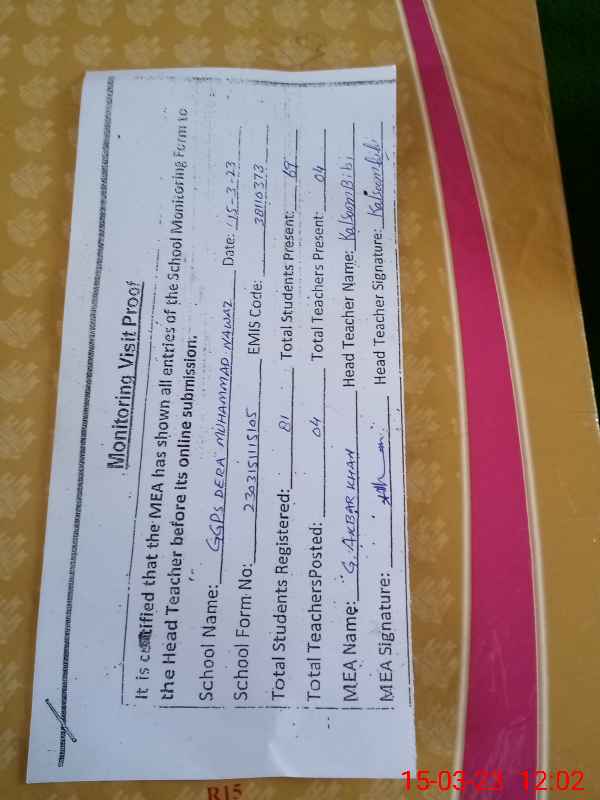 Monitoring Visit Proof
It is certified that the MEA has shown all entries of the School Monitoring Form to
the Head Teacher before its online submission.
School Name: GGPS DERA MUHAMMAD NAWAZ Date: 15-3-23
School Form No: 2303151115105 EMIS Code: 38110373
Total Students Registered: 81 Total Students Present: 69
Total TeachersPosted: 04 Total Teachers Present: 04
MEA Name: G. AKBAR KHAN Head Teacher Name: KalsoomBibi
MEA Signature: Head Teacher Signature: Kalsoombibi
R15
15-03-23 12:02